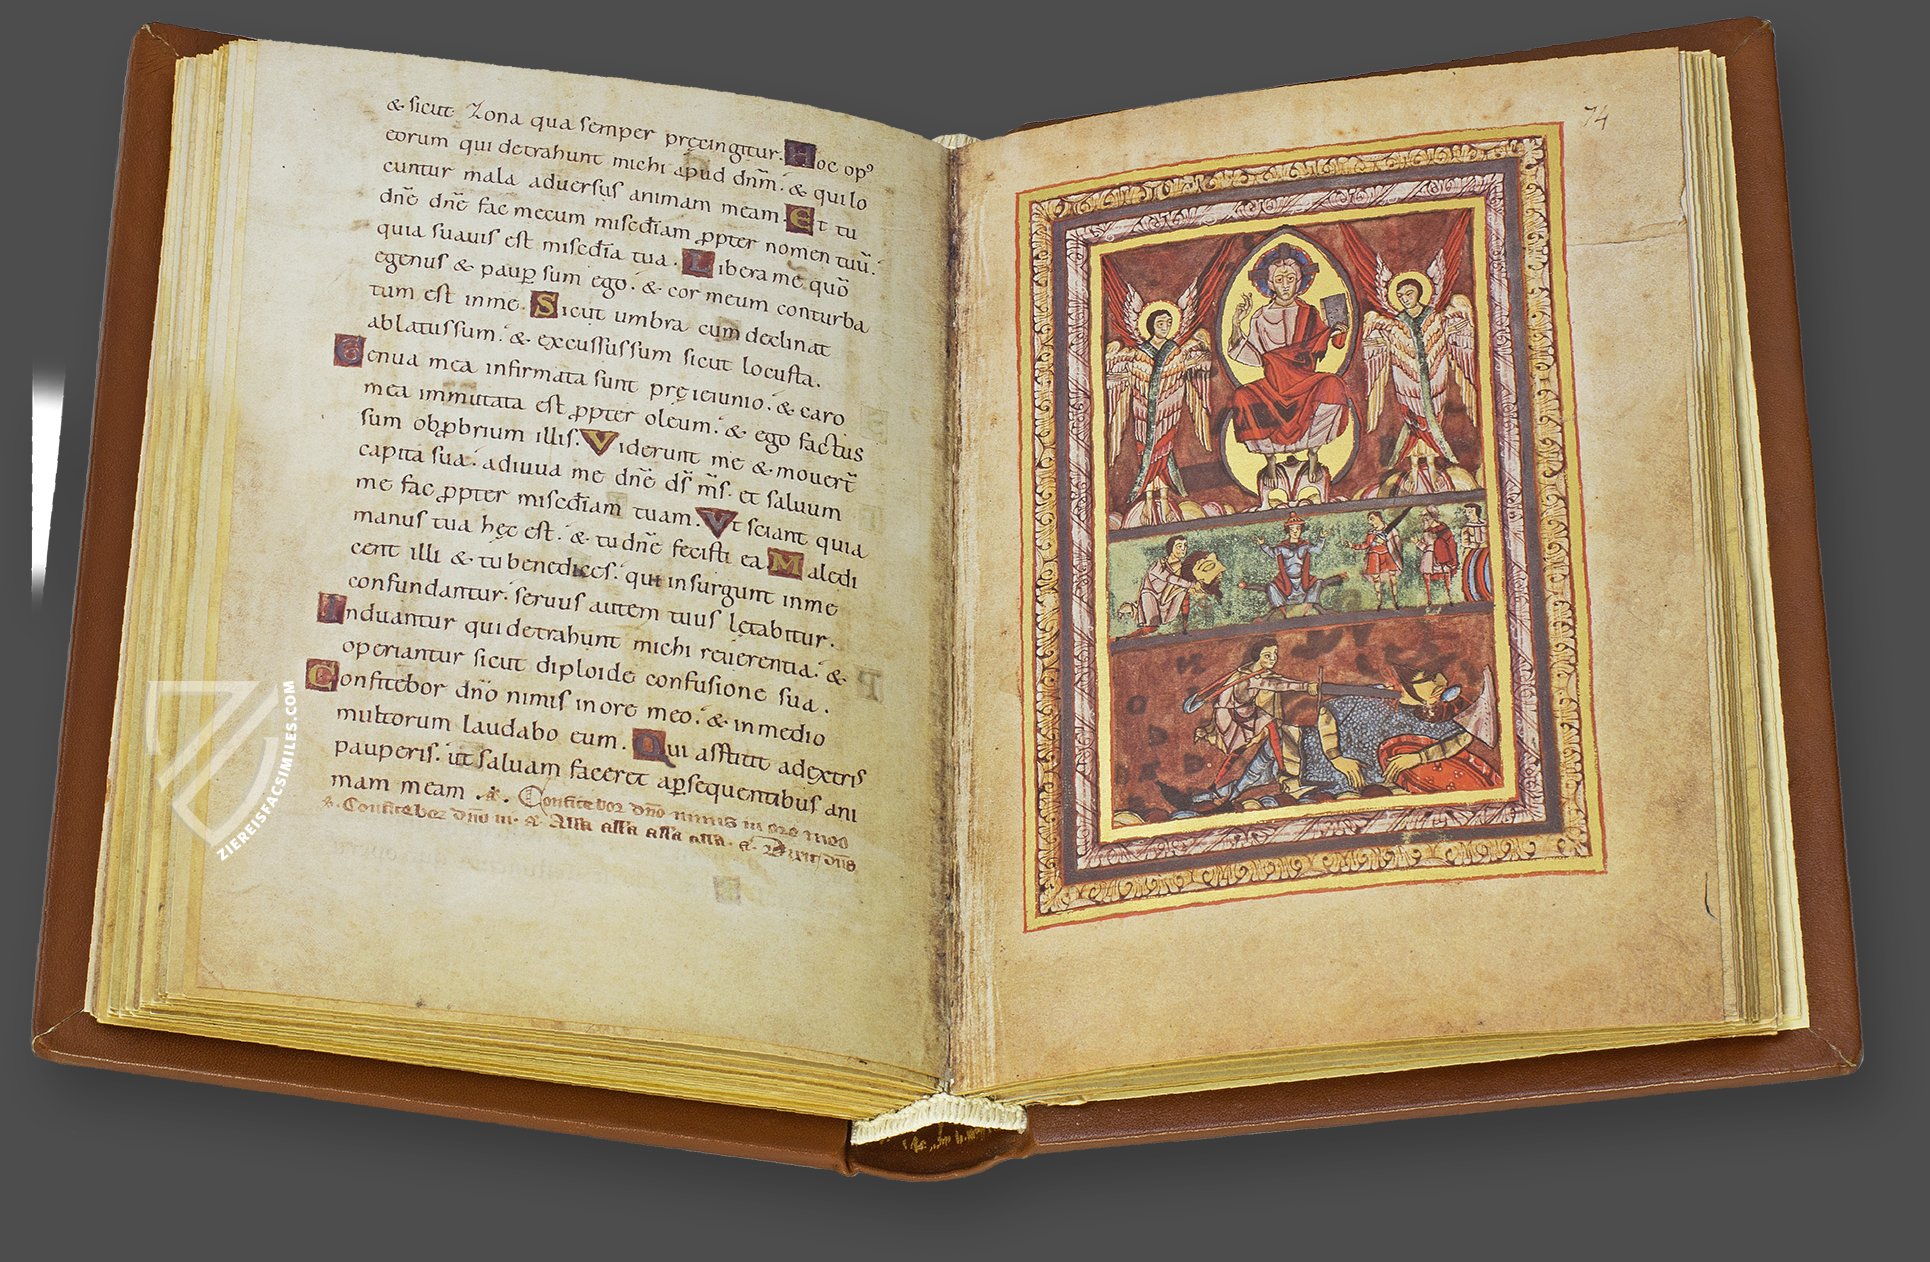 & sicut Zona qua semper pręcingitur. Hoc opꝰ
eorum qui detrahunt michi apud dn̄m. & qui lo
cuntur mala aduersus animam meam. Et tu
dn̄e dn̄e fac mecum misc̄diam ꝓpter nomen tuū.
quia suauis est misc̄dia tua. Libera me quō
egenus & paup̄ sum ego. & cor meum conturba
tum est inme. Sicut umbra cum declinat
ablatussum. & excussussum sicut locusta.
Genua mea infirmata sunt pręieiunio. & caro
mea immutata est ꝓpter oleum. & ego factus
sum obꝓbrium illis. Viderunt me & mouert̄
capita sua. adiuua me dn̄e ds̄ ms̄. et saluum
me fac ꝓpter misc̄diam tuam. Vt sciant quia
manus tua hęc est. & tu dn̄e fecisti ea. Maledi
cent illi & tu benedices. qui insurgunt inme
confundantur. seruus autem tuus lętabitur.
Induantur qui detrahunt michi reuerentia. &
operiantur sicut diploide confusione sua.
Confitebor dn̄o nimis inore meo. & inmedio
multorum laudabo eum. Qui astitit adextris
pauperis. ut saluam faceret aꝑsequentibus ani
mam meam. a. Confitebor dn̄o nimis in ore meo
a. Confitebor dn̄o
74
ZIEREISFACSIMILES.COM